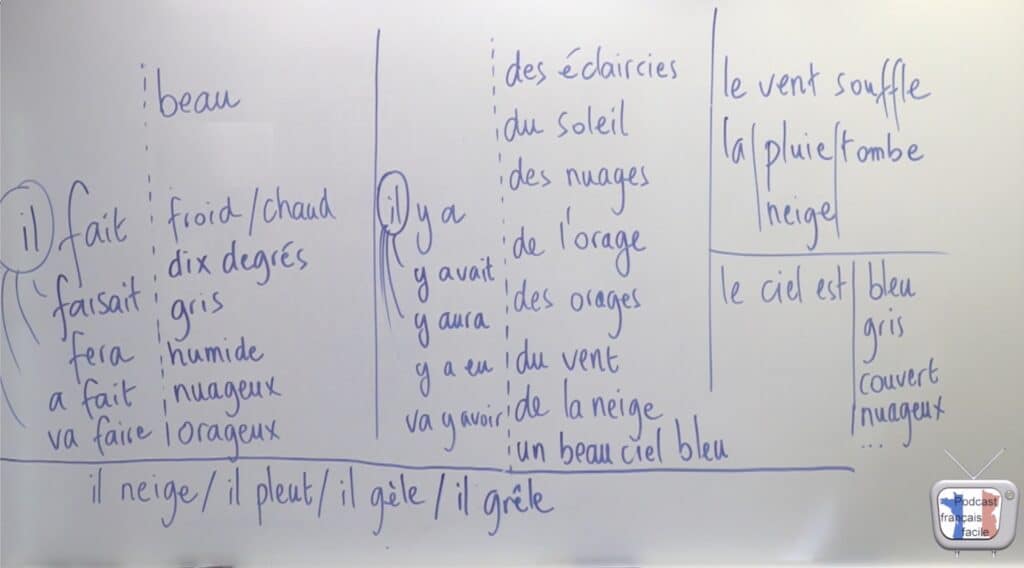 beau
il fait froid/chaud
dix degrés
faisait gris
fera humide
a fait nuageux
va faire orageux
des éclaircies
du soleil
des nuages
il y a
de l'orage
y avait
des orages
y aura
du vent
y a eu
de la neige
va y avoir
un beau ciel bleu
le vent souffle
la pluie tombe
neige
le ciel est bleu
gris
couvert
nuageux
...
il neige / il pleut / il gèle / il grêle
Podcast
français
facile